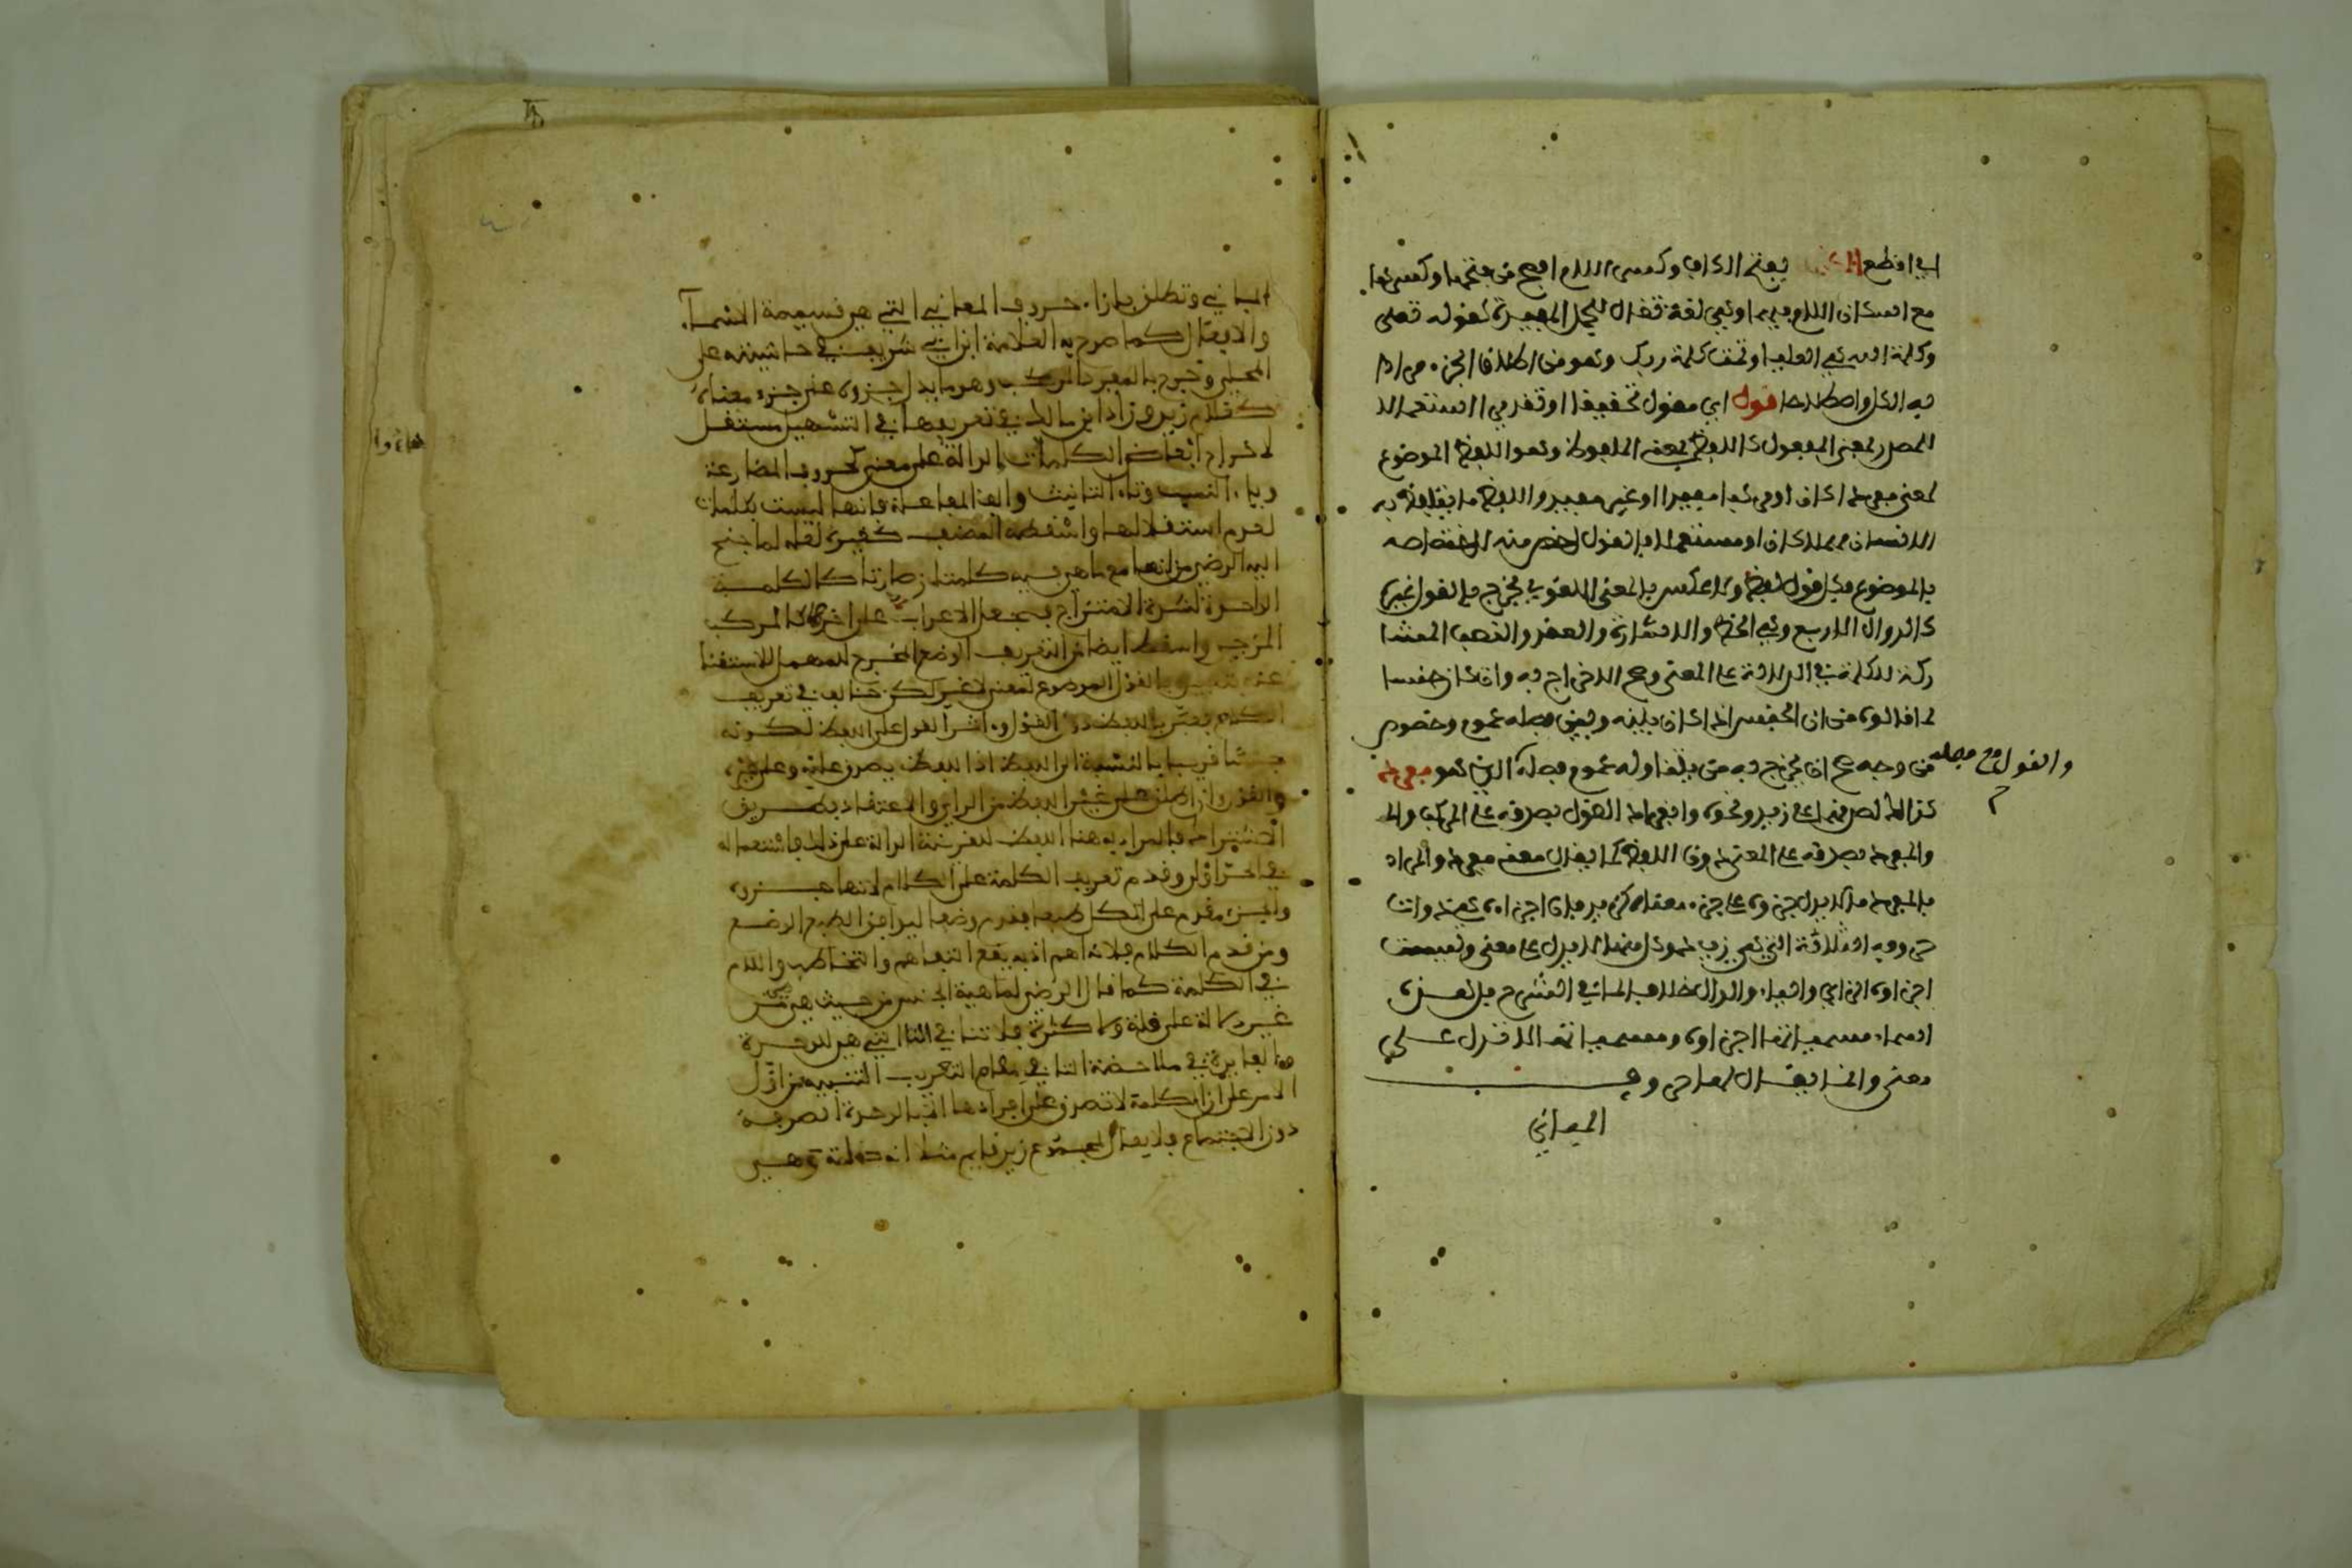 اي اقطع الكلمة بفتح الكاف وكسر اللام افصح من فتحها وكسرها
مع اسكان اللام فيهما وهي لغة تقال للجمل المفيدة كقوله تعلى
وكلمة الله هي العليا وتمت كلمة ربك وهو من اطلاق الجزء مرادا
به الكل واصطلاحا قول اي مقول تحقيقا او تقديرا استعمالا
للمصدر بمعنى المفعول كاللفظ بمعنى الملفوظ وهو اللفظ الموضوع
لمعنى مفردا كان او مركبا مفيدا او غير مفيد واللفظ ما يتلفظ به
الانسان مهملا كان او مستعملا فالقول اخص منه لاختصاصه
بالموضوع فكل قول لفظ ولا عكس بالمعنى اللغوي فخرج بالقول غيره
كالدوال الاربع وهي الخط والاشارة والعقد والنصب المشا
ركة للكلمة في الدلالة على المعنى وصح الاخراج به وان كان جنسا
لما قالوه من ان الجنس اذا كان بينه وبين فصله عموم وخصوص
من وجه صح ان يخرج به من يتناوله عموم فصله الذي هو مفرد
والقول مع فصله
كذلك لصدقهما على زيد ونحوه وانفراد القول بصدقه على المركب
والمفرد بصدقه على المعنى دون اللفظ كما يقال معنى مفرد والمراد
بالمفرد ما لا يدل جزوه على جزء معناه كزيد فان اجزاءه وهي ذوات
حروفه الثلاثة التي هي زيد كل منها لا يدل على معنى وليست
اجزاوه الزاي والياء والدال خلافا لما في الشرح بل هذه
اسماء مسمياتها اجزاوه ومسمياتها لا تدل على
معنى وانما يقال لها حروف
المباني
المباني وتطلق بازاء حروف المعاني التي هي قسيمة الاسماء
والافعال كما صرح به العلامة ابن ابي شريف في حاشيته على
المحلي وخرج بالمفرد المركب وهو ما يدل جزوه على جزء معناه
كغلام زيد وزاد ابن مالك في تعريفها في التسهيل مستقل
لاخراج ابعاض الكلمات الدالة على معنى كحروف المضارعة
وياء النسب وتاء التانيث والف المفاعلة فانها ليست بكلمات
لعدم استقلالها واسقطه المصنف كغيره لعله لما جنح
اليه الرضي من انها مع ما هي فيه كلمتان صارتا كالكلمة
الواحدة لشدة الامتزاج فجعل الاعراب على اخره كالمركب
المزجي واسقط ايضا من التعريف الوضع المخرج للمهمل للاستغنا
عنه بتعبيره بالقول الموضوع لمعنى لا غير لكن خالف في تعريف
الكلام فعبر باللفظ دون القول و اثر القول على اللفظ لكونه
جنسا قريبا بالنسبة الى اللفظ اذا اللفظ يصدق عليه وعلى غيره
والقول وان اطلق على غير اللفظ من الراي والاعتقاد بطريق
الاشتراك فالمراد به هنا اللفظ للقرينة الدالة على ذلك فاستعماله
في الحد اولى وقدم تعريف الكلمة على الكلام لانها جزوه
والجزء مقدم على الكل طبعا فقدم وضعا ليوافق الطبع الوضع
ومن قدم الكلام فلانه اهم اذ به يقع التفاهم والتخاطب واللام
في الكلمة كما قال الرضي لماهية الجنس من حيث هي هي من
غير دلالة على قلة ولا كثرة فلا تنافي التا التي هي للوحدة
والفايدة في ملاحظة التا في مقام التعريف التنبيه من اول
الامر على ان الكلمة لا تصدق على افرادها الا بالوحدة الصرفة
دون الاجتماع فلا يقال لمجموع زيد قايم مثلا انه كلمة وهي